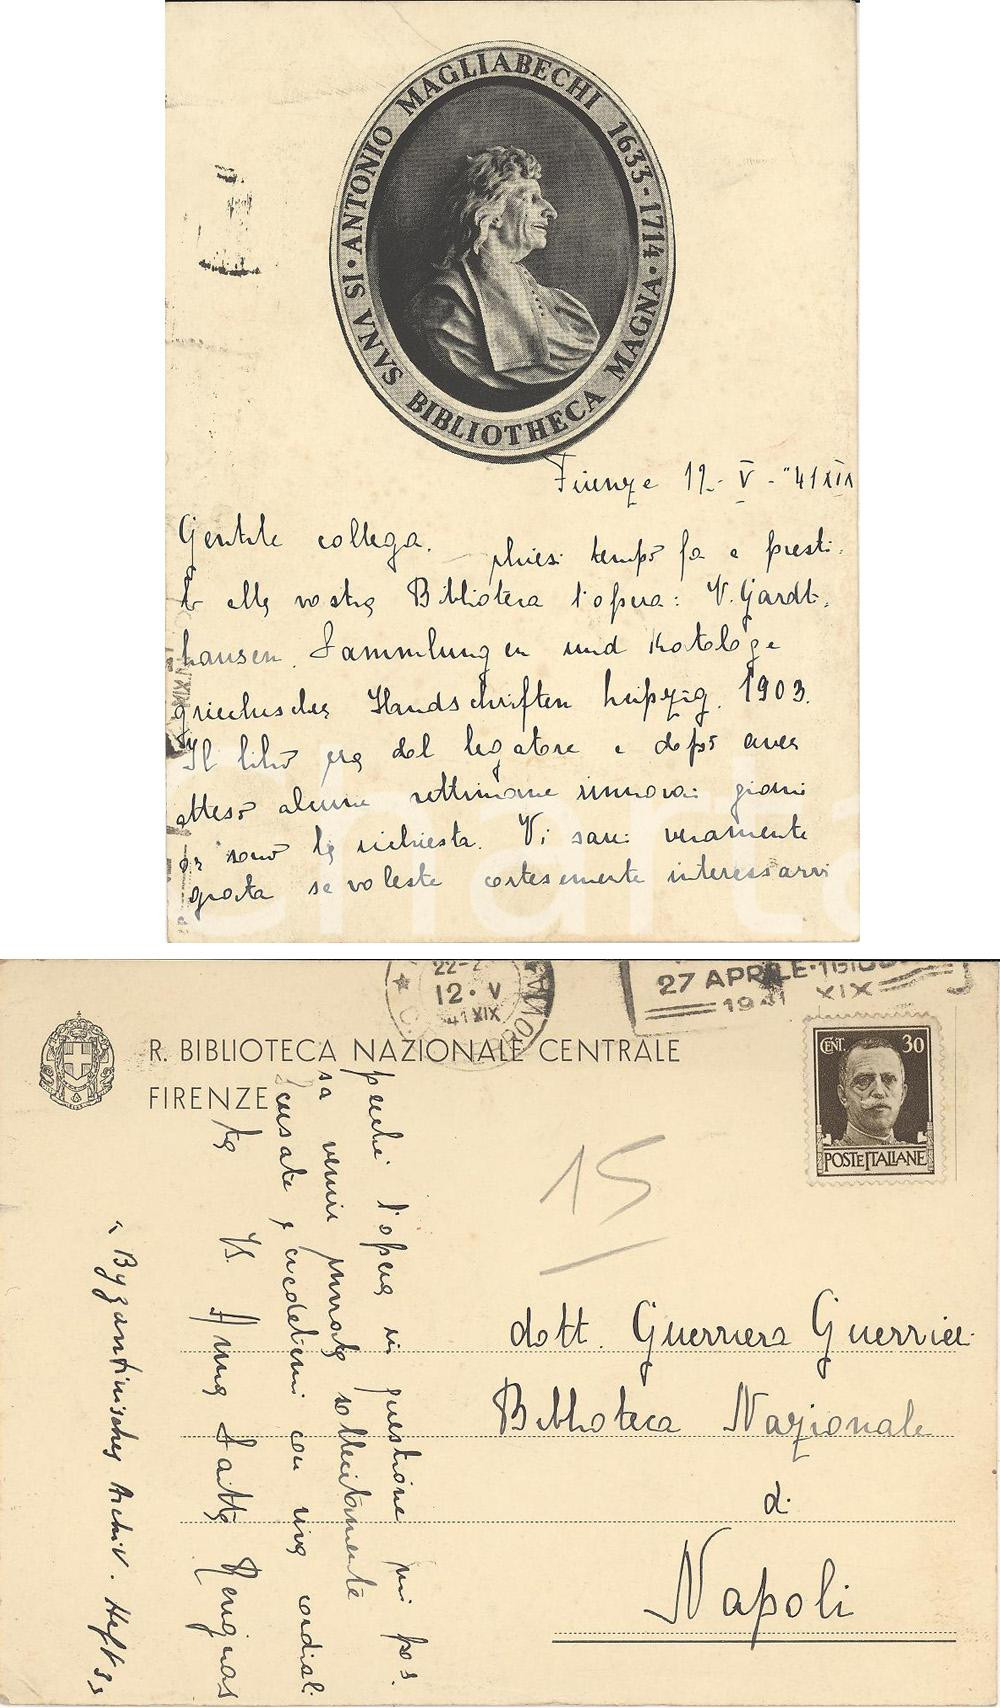 IS VNVS BIBLIOTHECA MAGNA · ANTONIO MAGLIABECHI 1633-1714
Firenze 12- V - "41 XIX
Gentile collega. chiesi tempo fa a presti-
to alla vostra Biblioteca l'opera: V. Gardt-
hausen. Sammlungen und Kataloge
griechischer Handschriften Leipzig. 1903.
Il libro era dal legatore e dopo aver
atteso alcune settimane rinnovai giorni
or sono la richiesta. Vi sarei veramente
grata se voleste cortesemente interessarvi
22-2
12 · V
41 XIX
27 APRILE-
1941 XIX
R. BIBLIOTECA NAZIONALE CENTRALE
FIRENZE
CENT. 30
POSTE ITALIANE
15
perché l'opera in questione mi pos-
sa venir inviata sollecitamente
Scusate e credetemi con viva cordiali-
tà Vs. Anna Saitta Revignas
"Byzantinisches Archiv. Heft 3"
dott. Guerriera Guerrieri
Biblioteca Nazionale
di
Napoli
charta